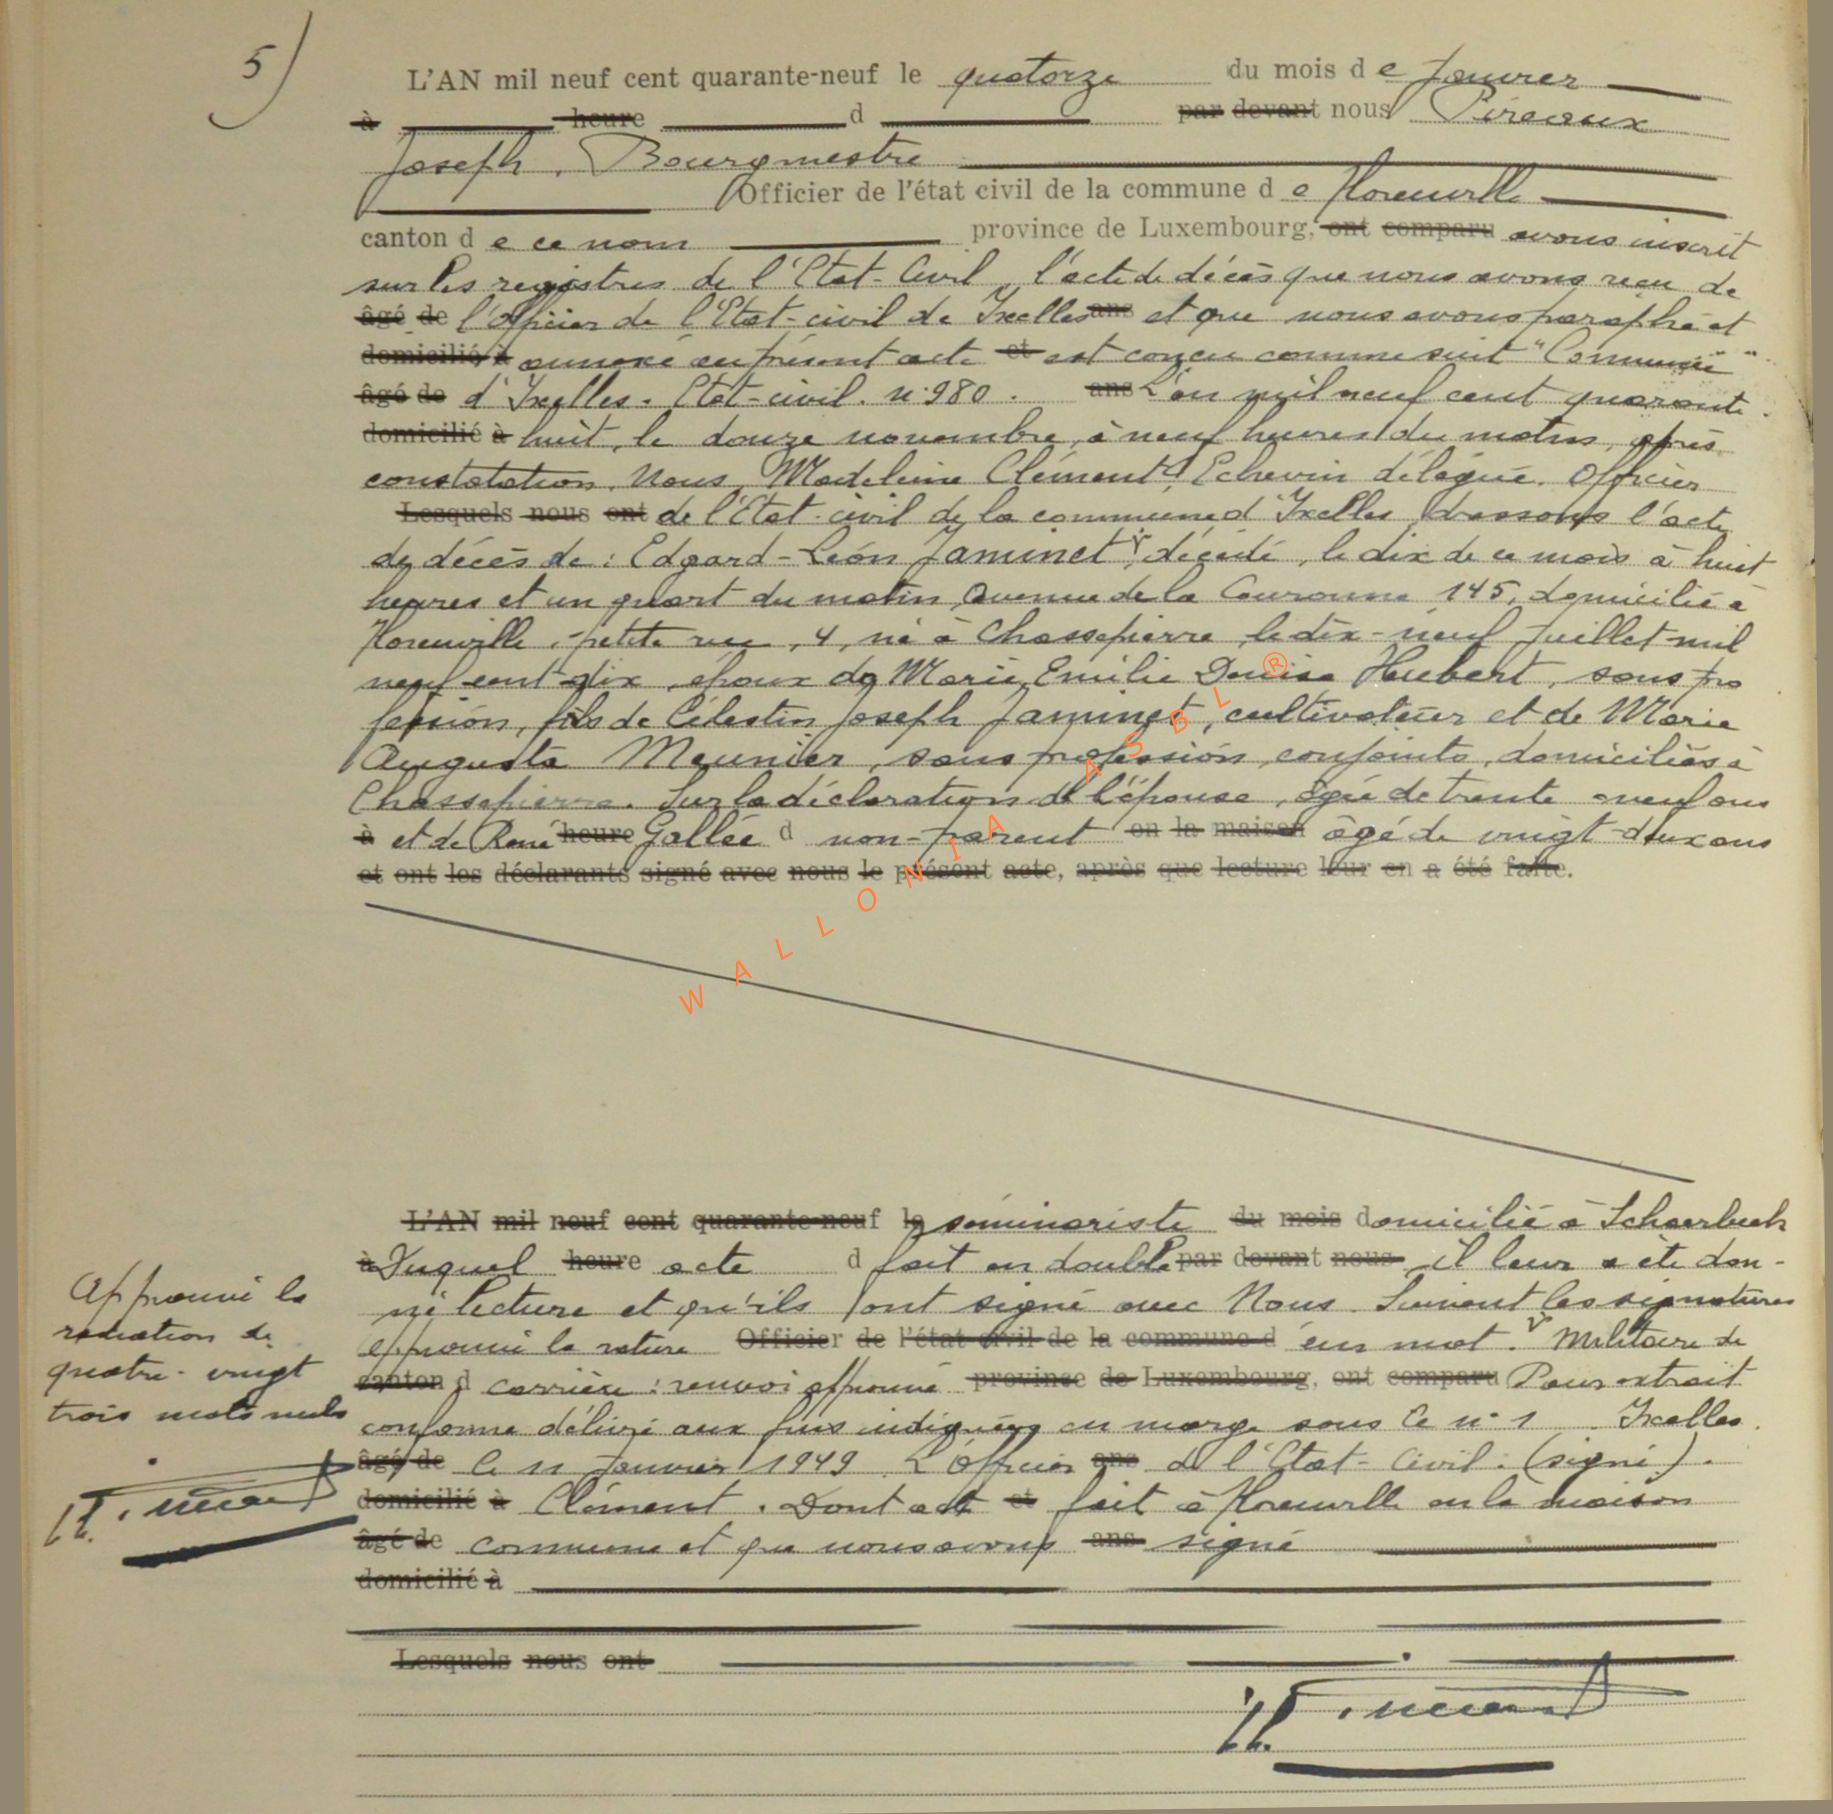 5)
L'AN mil neuf cent quarante-neuf le quatorze du mois de Janvier
à heure d par devant nous Pireaux
Joseph, Bourgmestre
Officier de l'état civil de la commune de Florenville
canton de ce nom province de Luxembourg, ont comparu avons inscrit
sur les registres de l'Etat-Civil l'acte de décès que nous avons reçu de
âgé de l'Officier de l'Etat-civil de Ixelles ans et que nous avons paraphé et
domicilié à annexé au présent acte et est conçu comme suit "Commune"
âgé de d'Ixelles. Etat-civil. n° 980. ans L'an mil neuf cent quarante
domicilié à huit, le douze novembre, à neuf heures du matin, après
constatation, Nous, Madeleine Clément, Echevin délégué, Officier
Lesquels nous ont de l'Etat-civil de la commune d'Ixelles, dressons l'acte
de décès de : Edgard-Léon Jaminet, décédé, le dix de ce mois à huit
heures et un quart du matin, avenue de la Couronne 145, domicilié à
Florenville, petite rue, 4, né à Chassepierre, le dix-neuf juillet mil
neuf cent dix, époux de Marie Emilie Denise Hubert, sans pro
fession, fils de Célestin Joseph Jaminet, cultivateur et de Marie
Augusta Meunier, sans profession, conjoints, domiciliés à
Chassepierre. Sur la déclaration de l'épouse, âgée de trente neuf ans
à et de René heure Gallée d non-parent en la maison âgé de vingt-deux ans
et ont les déclarants signé avec nous le présent acte, après que lecture leur en a été faite.
WALLONIA ASBL ®
L'AN mil neuf cent quarante-neuf le séminariste du mois domicilié à Schaerbeek
à Duquel heure acte d fait en double par devant nous il leur a été don-
né lecture et qu'ils ont signé avec Nous. Suivent les signatures
Approuvé la rature Officier de l'état civil de la commune d'un mot. Militaire de
canton d carrière : renvoi approuvé province de Luxembourg, ont comparu Pour extrait
conforme délivré aux fins indiquées en marge sous le n° 1 Ixelles.
âgé de le 11 Janvier 1949 L'Officier ans de l'Etat-Civil : (signé).
domicilié à Clément. Dont acte et fait à Florenville en la maison
âgé de commune et que nous avons ans signé
domicilié à
Lesquels nous ont
Approuvé la
radiation de
quatre-vingt
trois mots nuls